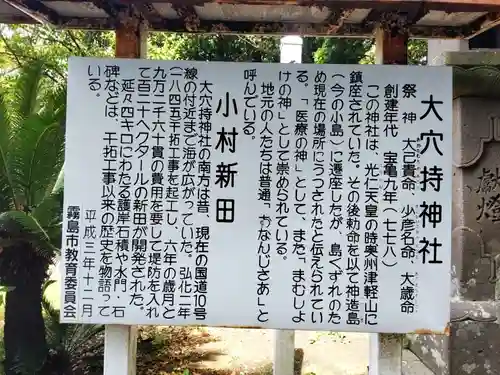 大穴持神社
おおあなもちじんじゃ
祭神　大己貴命、少彦名命、大歳命
創建年代　宝亀九年(七七八)
この神社は、光仁天皇の時奥州津軽山に
鎮座されていた。その後勅命を以て神造島
(今の小島)に遷座したが、島くずれのた
め現在の場所にうつされたと伝えられてい
る。「医療の神」として、また、まむしよ
けの神」として崇められている。
地元の人たちは普通「おなんじさあ」と
呼んでいる。
小村新田
大穴持神社の南方は昔、現在の国道10号
線の付近まで海が広がっていた。弘化二年
(一八四五)干拓工事を起こし、六年の歳月と
九万二千六十貫の費用を要して堤防を入れ
て百二十ヘクタールの新田が開発された。
延々四キロにわたる護岸石積や水門・石
碑などは、干拓工事以来の歴史を物語って
いる。
平成三年十二月
霧島市教育委員会
献燈